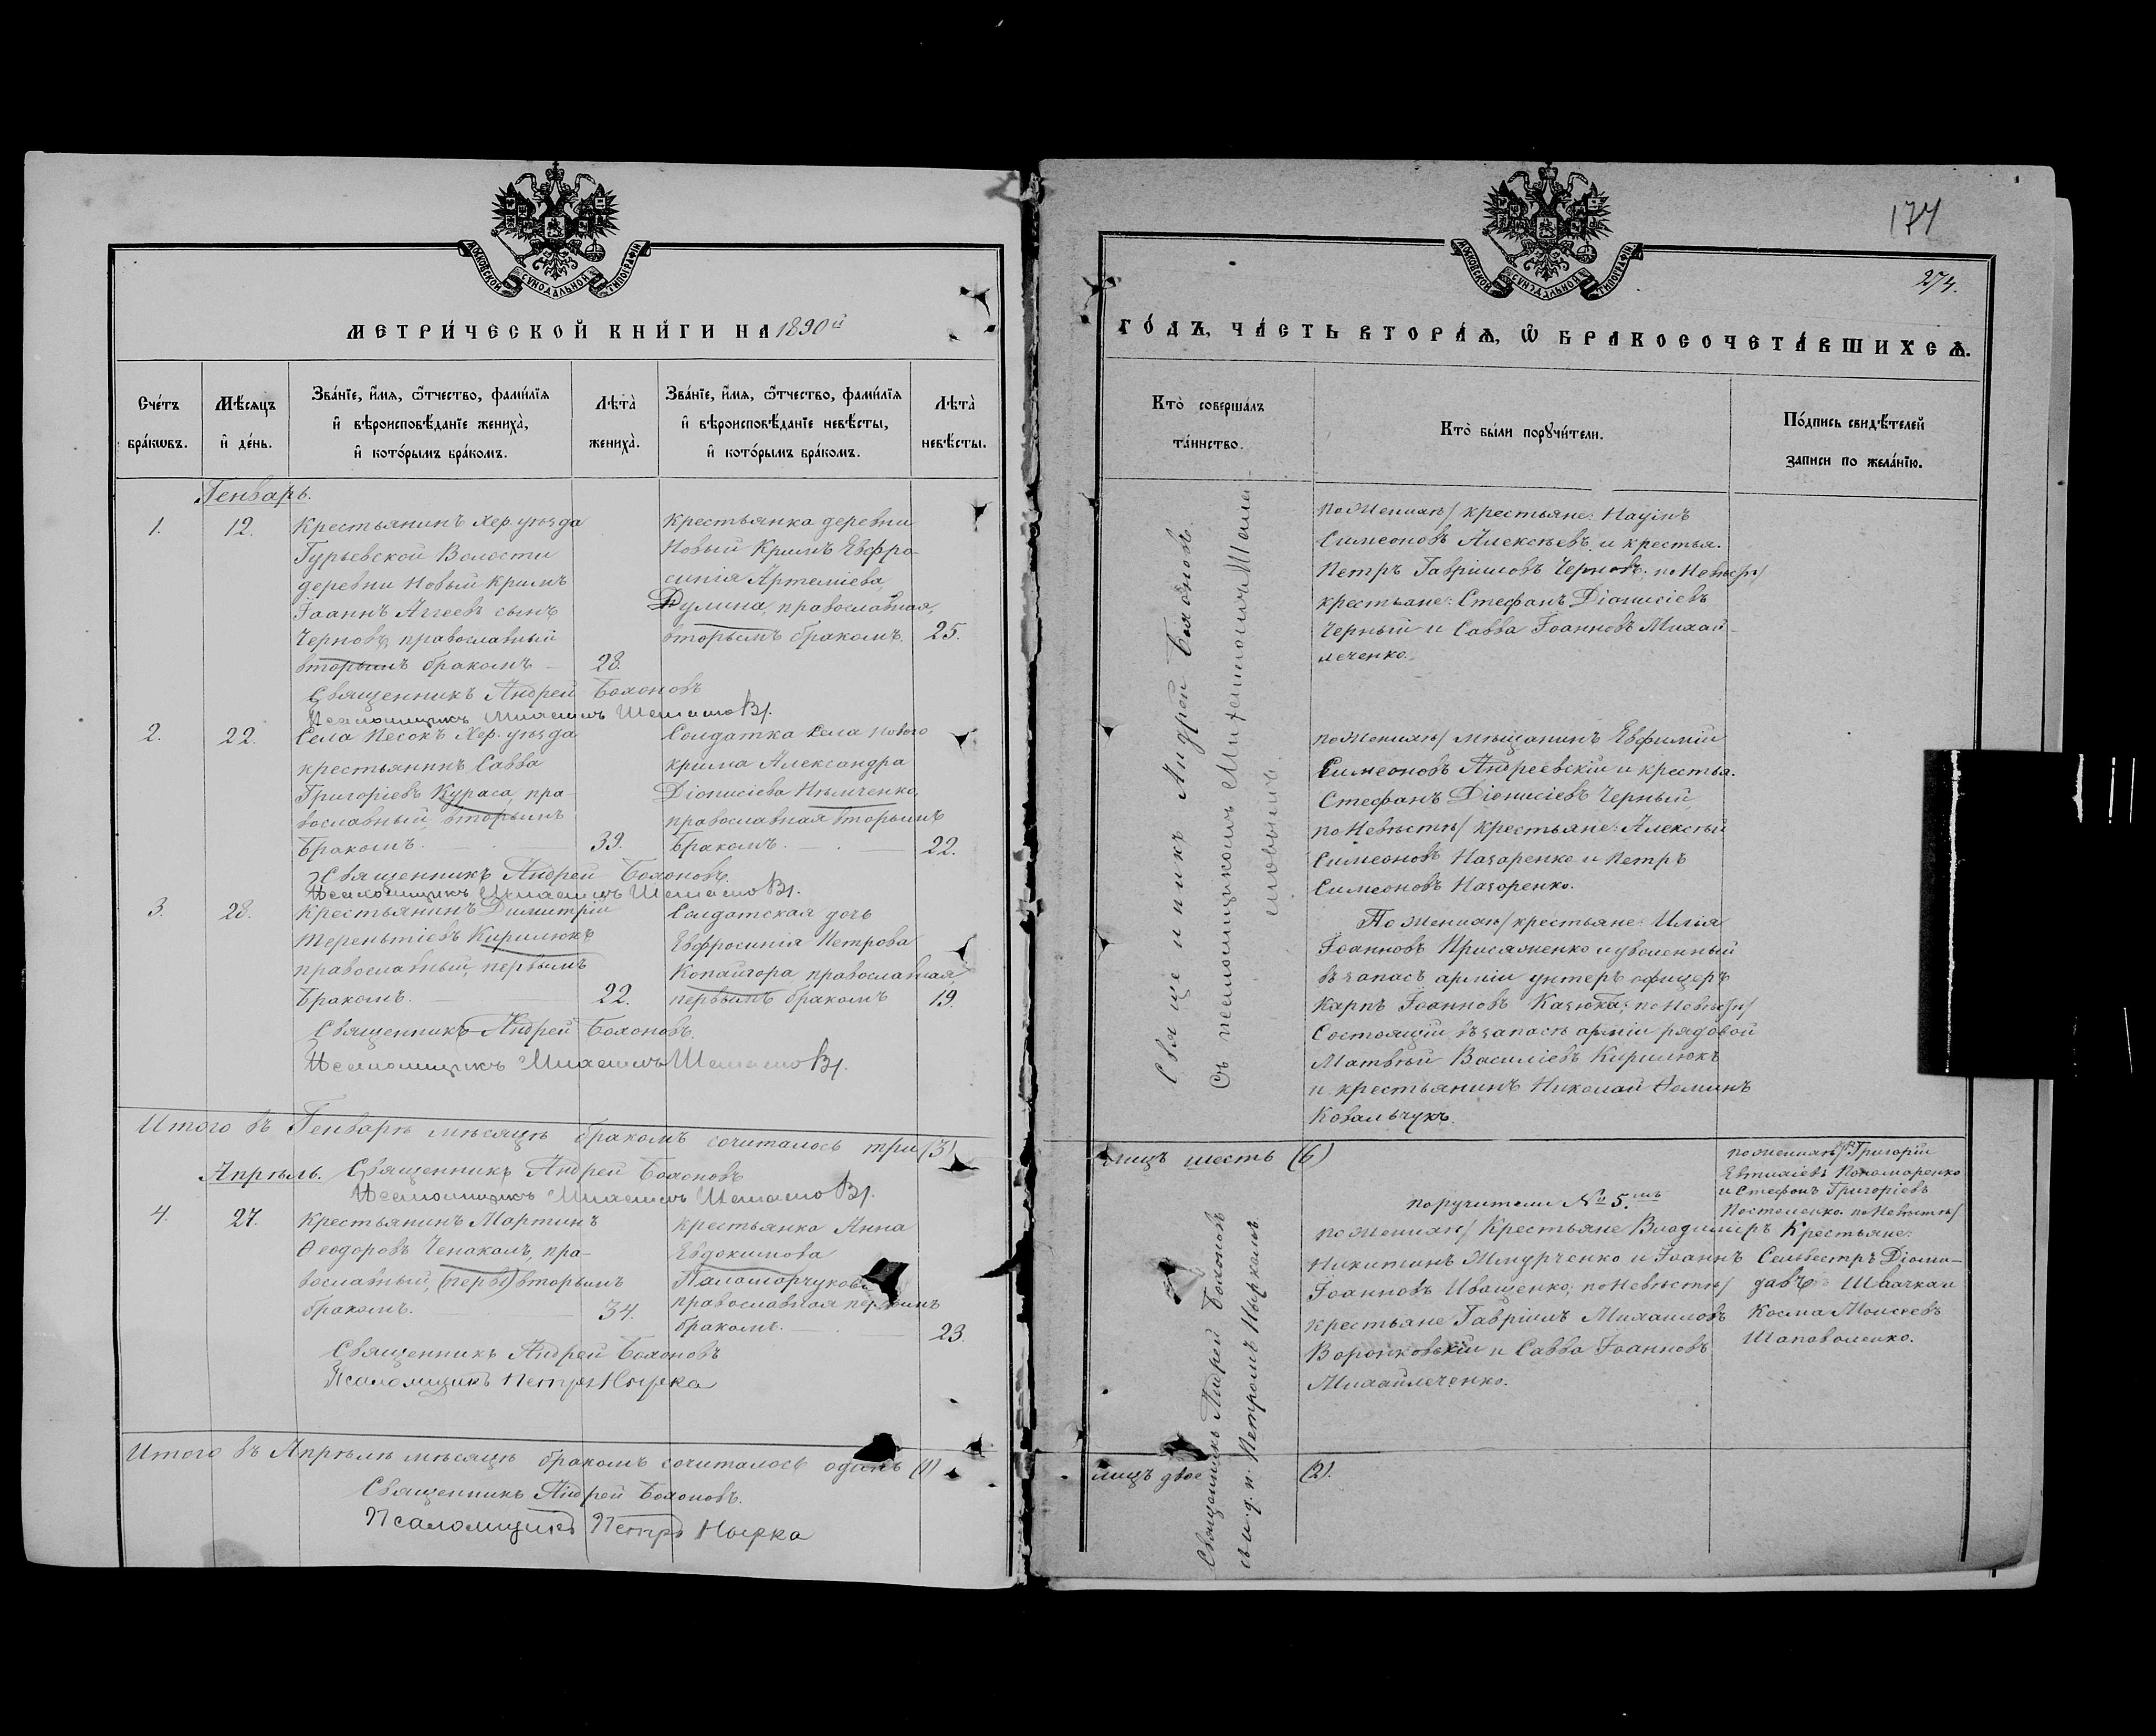 МОСКОВСКОЙ СУНОДАЛЬНОЙ ТИПОГРАФІИ
МЕТРИ́ЧЕСКОЙ КНИ́ГИ НА 1890й
Сче́тъ бра́кѡвъ.
Мѣ́сяцъ и҆ де́нь.
Зва́нїе, и҆́мя, ѻ҆́тчество, фами́лїя
и҆ вѣроисповѣ́данїе жениха̀,
и҆ кото́рымъ бра́комъ.
Лѣта̀ жениха̀.
Зва́нїе, и҆́мя, ѻ҆́тчество, фами́лїя
и҆ вѣроисповѣ́данїе невѣ́сты,
и҆ кото́рымъ бра́комъ.
Лѣта̀ невѣ́сты.
Генварь.
1.
12.
Крестьянинъ Хер. уѣзда
Гурьевской Волости
деревни Новый Кримъ
Іоаннъ Аггеевъ сынъ
Черновъ, православный
вторымъ бракомъ
28.
Крестьянка деревни
Новый Кримъ Евфро-
синія Артеміева
Дулина, православная,
вторымъ бракомъ.
25.
Священникъ Андрей Бахоновъ
Псаломщикъ
2.
22.
Села Песокъ Хер. уѣзда
крестьянинъ Савва
Григоріевъ Кураса, пра-
вославный, вторымъ
бракомъ.
39.
Солдатка села Новаго
Крима Александра
Діонисіева Нѣмченко,
православная вторымъ
бракомъ.
22.
Священникъ Андрей Бахоновъ.
Псаломщикъ
3.
28.
Крестьянинъ Димитрій
Терентіевъ Кирилюкъ
православный, первымъ
бракомъ.
22.
Солдатская дочь
Евфросинія Петрова
Копайгора православная,
первымъ бракомъ
19.
Священникъ Андрей Бахоновъ.
Псаломщикъ
Итого въ Генварѣ мѣсяцѣ бракомъ сочиталось три (3)
Апрѣль.
Священникъ Андрей Бахоновъ
Псаломщикъ
4.
27.
Крестьянинъ Мартинъ
Ѳеодоровъ Чепакомъ, пра-
вославный, (первы) вторымъ
бракомъ.
34.
Крестьянка Анна
Евдокимова
Паламарчукова
православная первымъ
бракомъ.
23.
Священникъ Андрей Бахоновъ
Псаломщикъ Петръ Нырка
Итого въ Апрѣлѣ мѣсяцѣ бракомъ сочиталось одинъ (1)
Священникъ Андрей Бахоновъ.
Псаломщикъ Петръ Нырка
174
274.
МОСКОВСКОЙ СУНОДАЛЬНОЙ ТИПОГРАФІИ
ГО́ДЪ, ЧА́СТЬ ВТОРА́Ѧ, Ѡ҆ БРАКОСОЧЕТА́ВШИХСѦ.
Кто̀ соверша́лъ
та́инство.
Кто̀ бы́ли порꙋчи́тели.
По́дпись свидѣ́телей
записи по жела́нїю.
Священникъ Андрей Бахоновъ
Съ псаломщикомъ
по Женихѣ/ крестьяне: Наумъ
Симеоновъ Алексѣевъ и крестья.
Петръ Гавріиловъ Черновъ; по Невѣстѣ/
крестьяне: Стефанъ Діонисіевъ
Черный и Савва Іоанновъ Михай-
леченко.
по Женихѣ/ мѣщанинъ Евфимій
Симеоновъ Андреевскій и крестья.
Стефанъ Діонисіевъ Черный,
по Невѣстѣ/ крестьяне: Алексѣй
Симеоновъ Назаренко и Петръ
Симеоновъ Назаренко.
По Женихѣ/ крестьяне: Илія
Іоанновъ Присяженко и уволенный
въ запасъ арміи унтеръ офицеръ
Карпъ Іоанновъ Казюка; по Невѣстѣ/
Состоящій въ запасѣ арміи рядовой
Матвѣй Василіевъ Кирилюкъ
и крестьянинъ Николай Ѳоминъ
Ковальчукъ.
лицъ шесть (6)
Священникъ Андрей Бахоновъ
съ и. д. п. Петромъ Ныркомъ
Поручители № 5.мъ
по Женихѣ/ Крестьяне Владиміръ
Никитинъ Шмурченко и Іоаннъ
Іоанновъ Иващенко; по Невѣстѣ/
крестьяне Гавріилъ Михаиловъ
Воронковскій и Савва Іоанновъ
Михайлеченко.
по женихѣ/ Григорій
Евтихіевъ Пономаренко
и Стефанъ Григоріевъ
Постоленко. по Невѣстѣ/
Крестьяне:
Сельвестръ Діоми-
давъ Швачка и
Косма Моисеевъ
Шаповаленко.
лицъ двое (2).